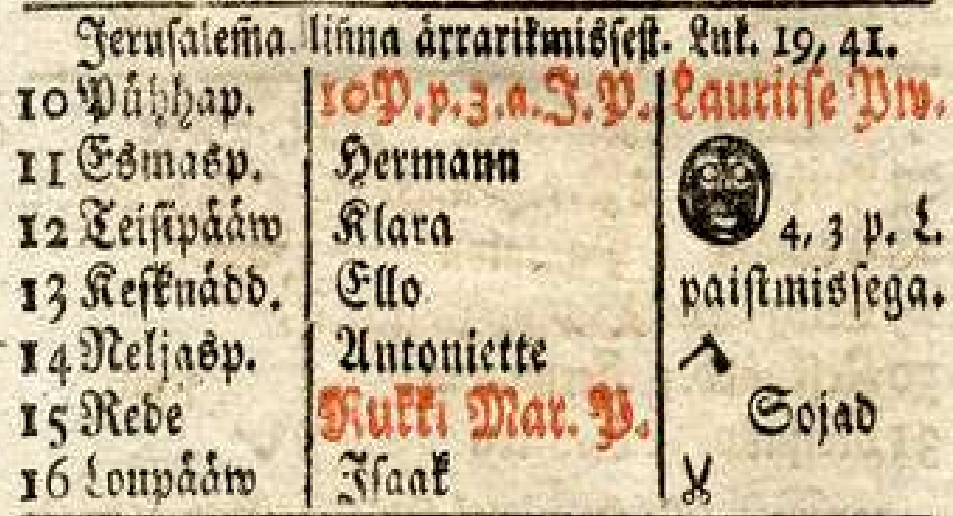 Jerusalem̃a liñna ärrarikmissest. Luk. 19, 41.
10 Pühhap. 10 P. p. 3. a. J. P. Lauritse Pw.
11 Esmasp. Hermann
12 Teisipääw Klara 4, 3 p. L.
13 Kesknädd. Ello paistmissega.
14 Neljasp. Antoniette
15 Rede Rukki Mar. P. Sojad
16 Loupääw Isaak